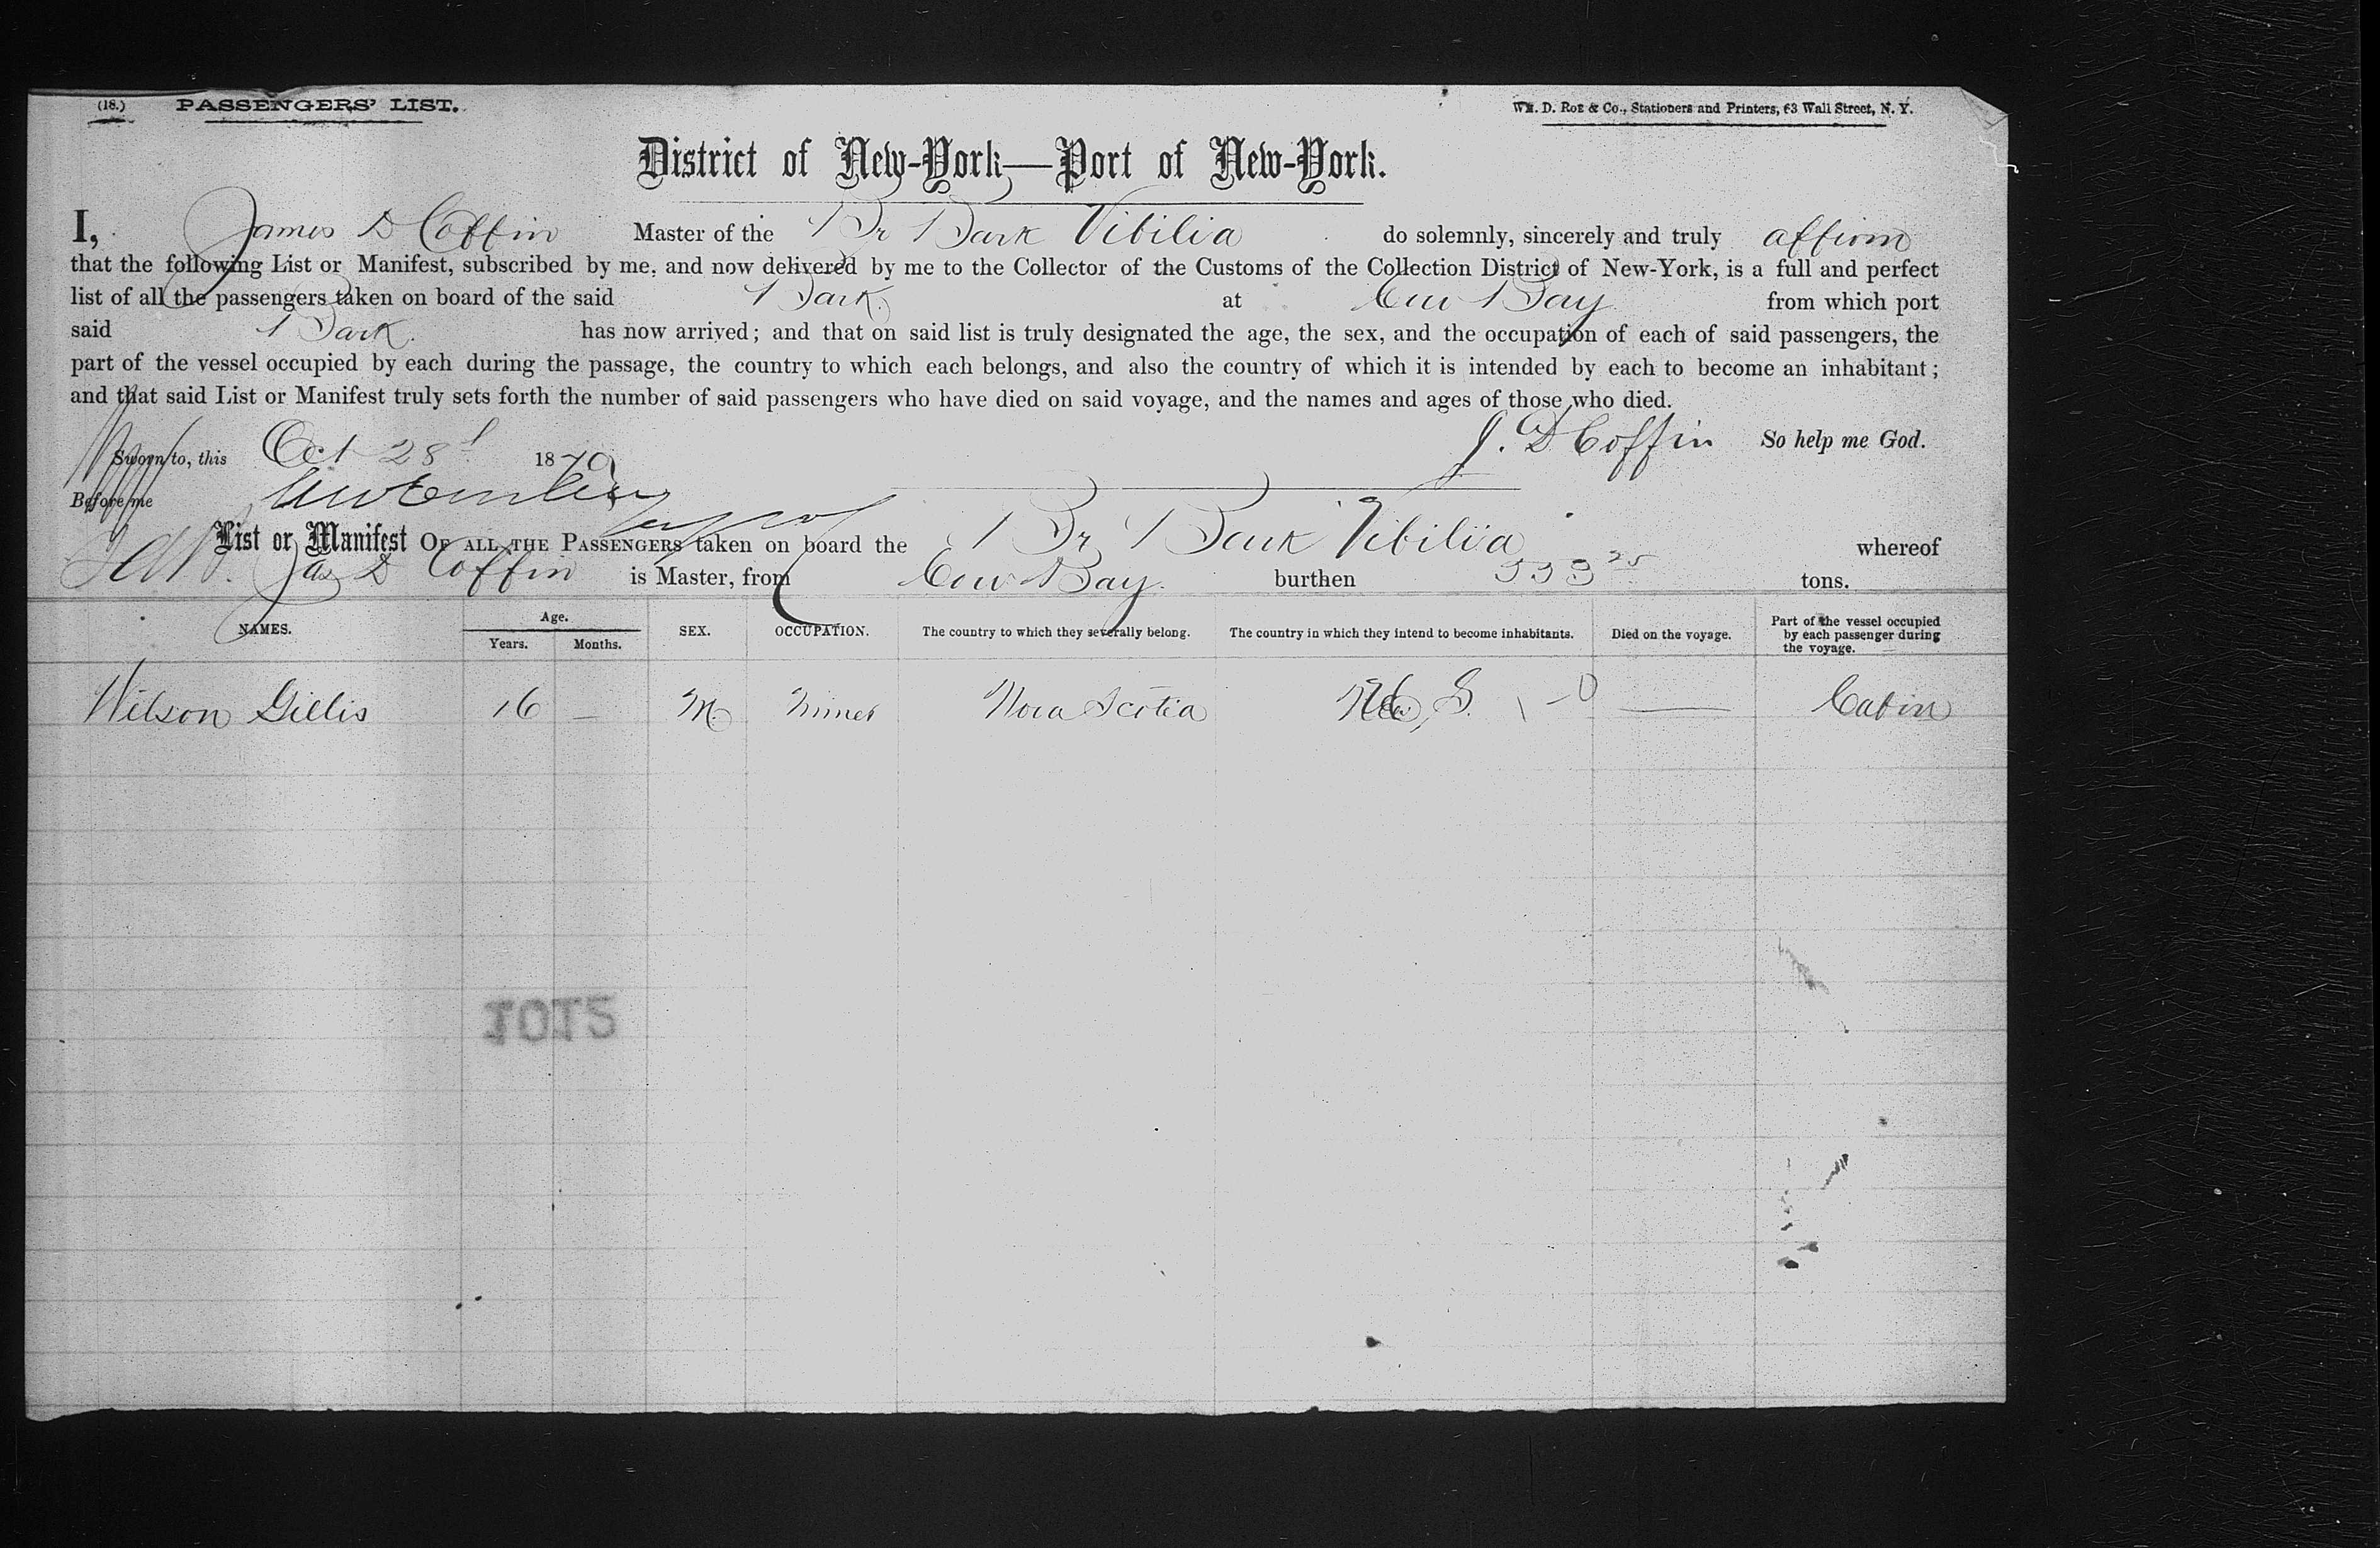 (18.) PASSENGERS' LIST.
WM. D. ROE & Co., Stationers and Printers, 63 Wall Street, N. Y.
District of New-York—Port of New-York.
I, James D Coffin Master of the Br Bark Vibilia do solemnly, sincerely and truly affirm
that the following List or Manifest, subscribed by me, and now delivered by me to the Collector of the Customs of the Collection District of New-York, is a full and perfect
list of all the passengers taken on board of the said Bark at Cow Bay from which port
said Bark. has now arrived; and that on said list is truly designated the age, the sex, and the occupation of each of said passengers, the
part of the vessel occupied by each during the passage, the country to which each belongs, and also the country of which it is intended by each to become an inhabitant;
and that said List or Manifest truly sets forth the number of said passengers who have died on said voyage, and the names and ages of those who died.
J. D Coffin So help me God.
Sworn to, this Oct 28 1870
Before me
List or Manifest OF ALL THE PASSENGERS taken on board the Br Bark Vibilia whereof
Jas D Coffin is Master, from Cow Bay burthen 533 25 tons.
NAMES. Age. Years. Months. SEX. OCCUPATION. The country to which they severally belong. The country in which they intend to become inhabitants. Died on the voyage. Part of the vessel occupied by each passenger during the voyage.
Wilson Gillis 16 — M. Nova Scotia S. — Cabin
1012